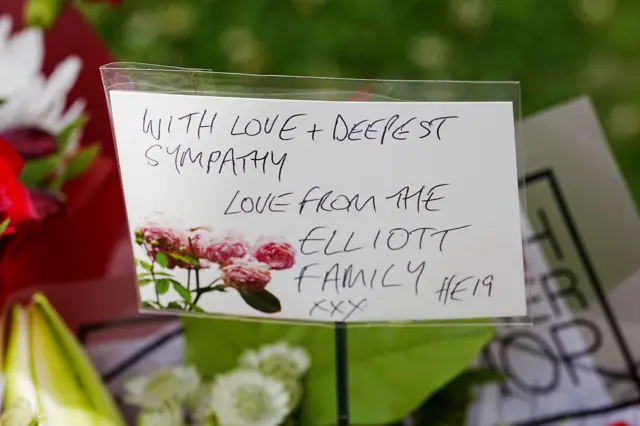 WITH LOVE + DEEPEST
SYMPATHY
LOVE FROM THE
ELLIOTT
FAMILY HE19
XXX